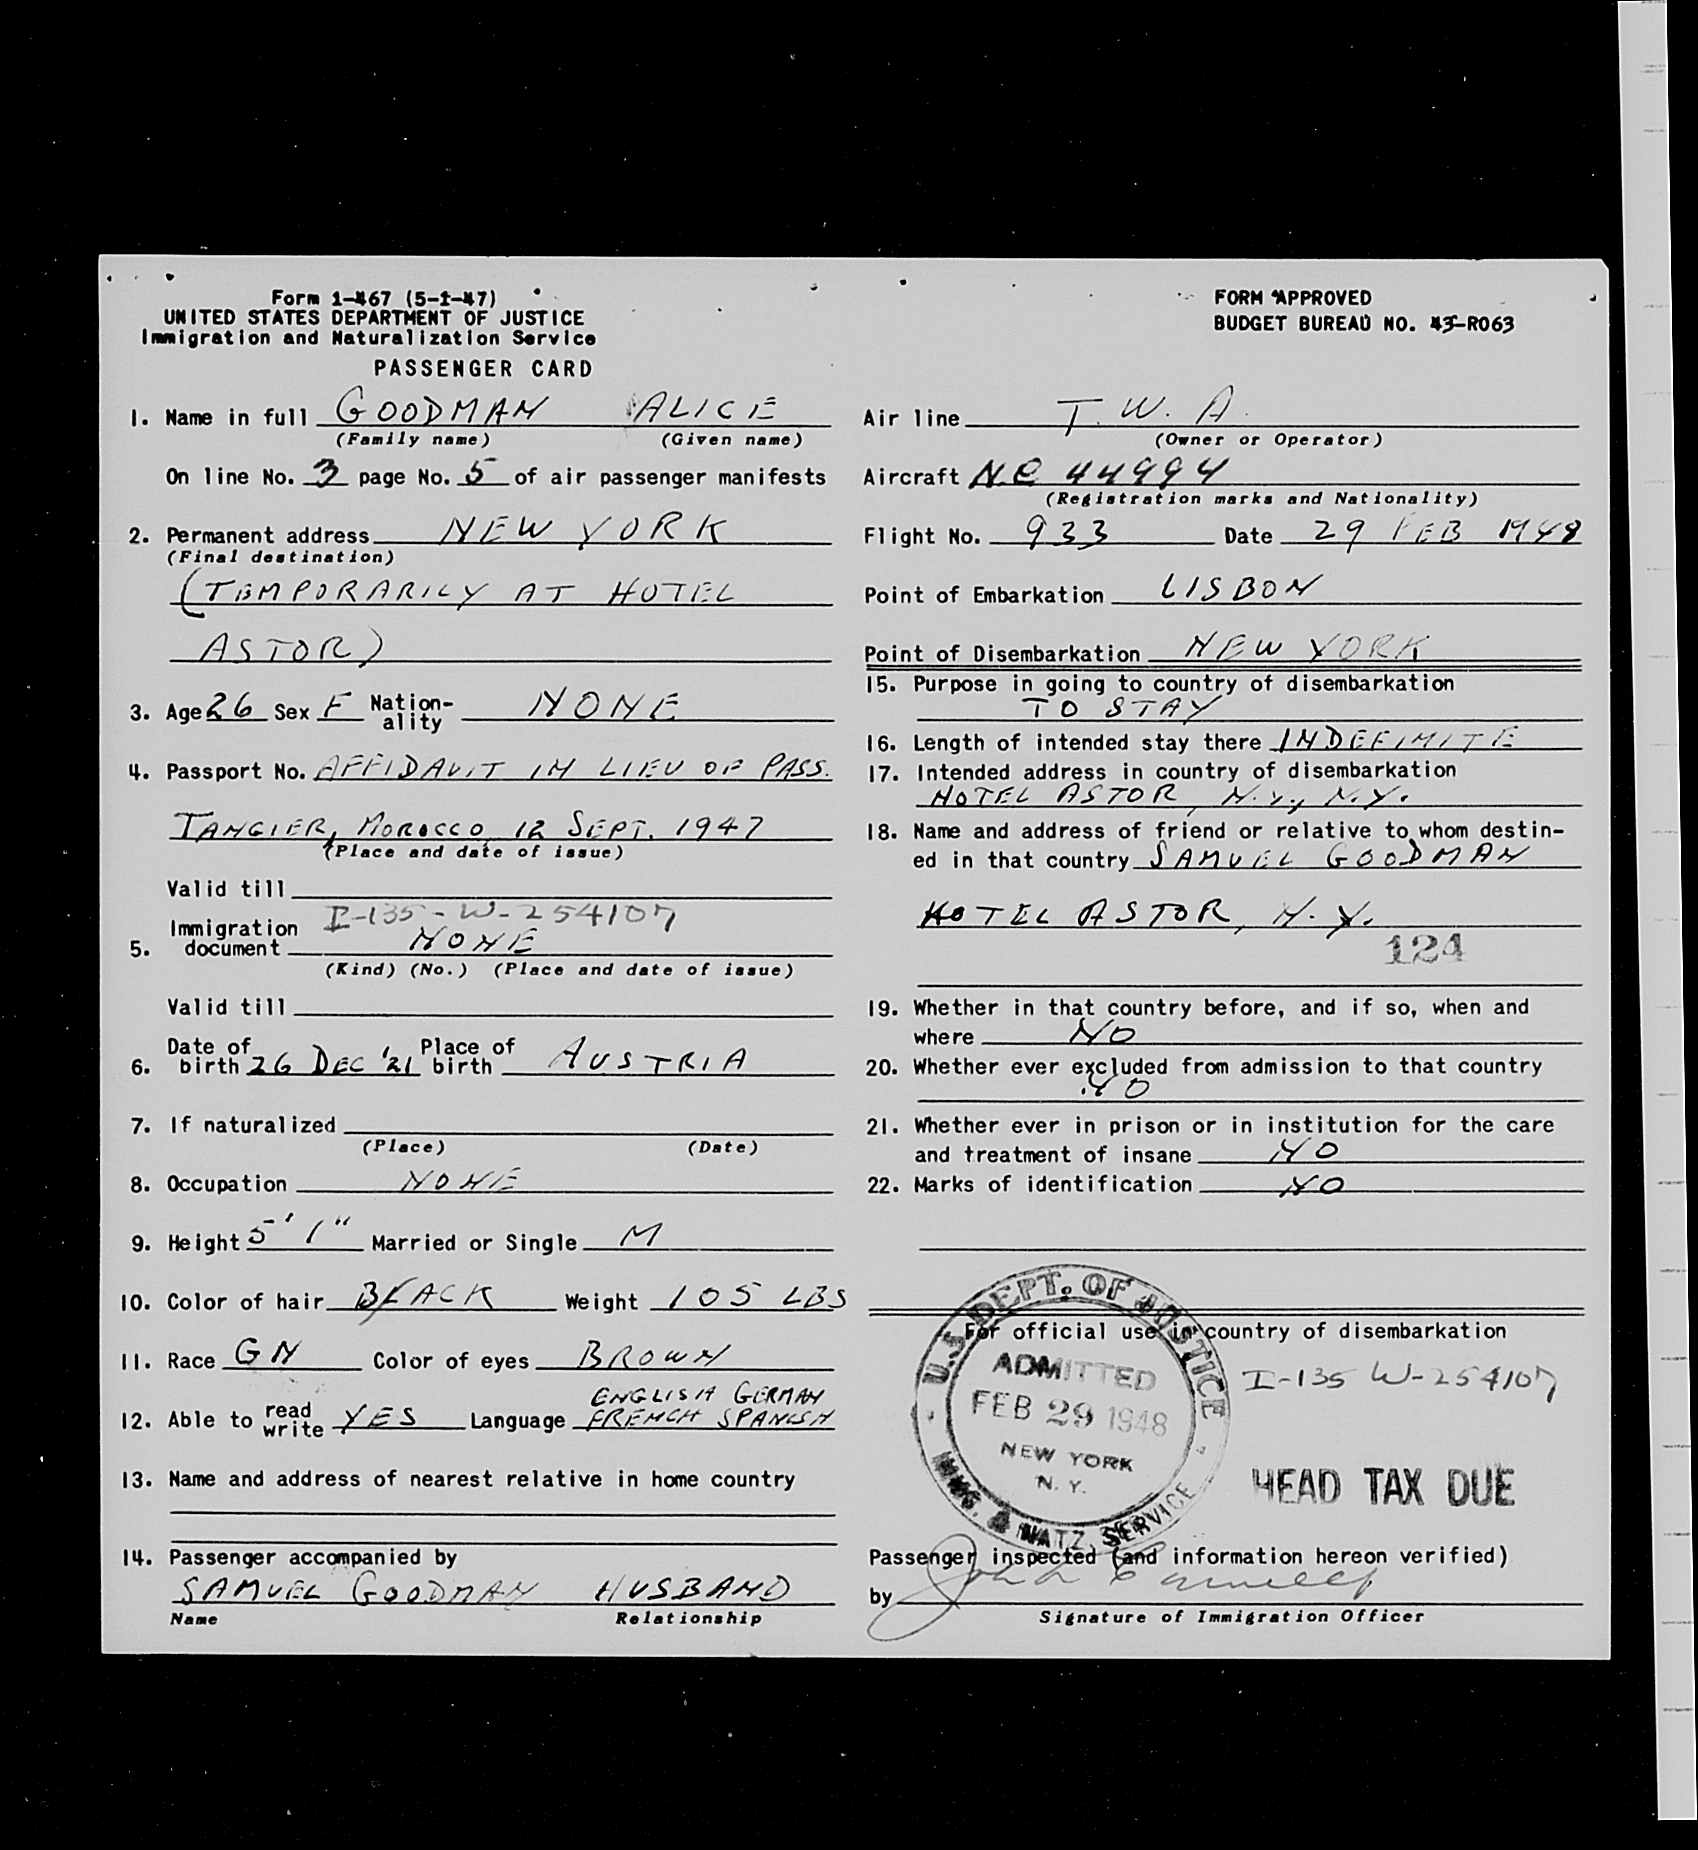 Form 1-467 (5-1-47)
UNITED STATES DEPARTMENT OF JUSTICE
Immigration and Naturalization Service
PASSENGER CARD
FORM APPROVED
BUDGET BUREAU NO. 43-R063
1. Name in full GOODMAN ALICE
(Family name) (Given name)
On line No. 3 page No. 5 of air passenger manifests
2. Permanent address NEW YORK
(Final destination)
(TEMPORARILY AT HOTEL
ASTOR)
3. Age 26 Sex F Nation-ality NONE
4. Passport No. AFFIDAVIT IN LIEU OF PASS.
TANGIER, MOROCCO, 12 SEPT. 1947
(Place and date of issue)
Valid till
I-135-W-254107
5. Immigration document NONE
(Kind) (No.) (Place and date of issue)
Valid till
6. Date of birth 26 DEC '21 Place of birth AUSTRIA
7. If naturalized
(Place) (Date)
8. Occupation NONE
9. Height 5' 1" Married or Single M
10. Color of hair BLACK Weight 105 LBS
11. Race GN Color of eyes BROWN
12. Able to read write YES Language ENGLISH GERMAN
FRENCH SPANISH
13. Name and address of nearest relative in home country
14. Passenger accompanied by
SAMUEL GOODMAN HUSBAND
Name Relationship
Air line T.W.A.
(Owner or Operator)
Aircraft NC 44994
(Registration marks and Nationality)
Flight No. 933 Date 29 FEB 1948
Point of Embarkation LISBON
Point of Disembarkation NEW YORK
15. Purpose in going to country of disembarkation
TO STAY
16. Length of intended stay there INDEFINITE
17. Intended address in country of disembarkation
HOTEL ASTOR, N.Y., N.Y.
18. Name and address of friend or relative to whom destin-
ed in that country SAMUEL GOODMAN
HOTEL ASTOR, N.Y.
124
19. Whether in that country before, and if so, when and
where NO
20. Whether ever excluded from admission to that country
NO
21. Whether ever in prison or in institution for the care
and treatment of insane NO
22. Marks of identification NO
For official use in country of disembarkation
U.S. DEPT. OF JUSTICE
ADMITTED
FEB 29 1948
NEW YORK
N.Y.
IMMG. & NATZ. SERVICE
I-135 W-254107
HEAD TAX DUE
Passenger inspected (and information hereon verified)
by John
Signature of Immigration Officer